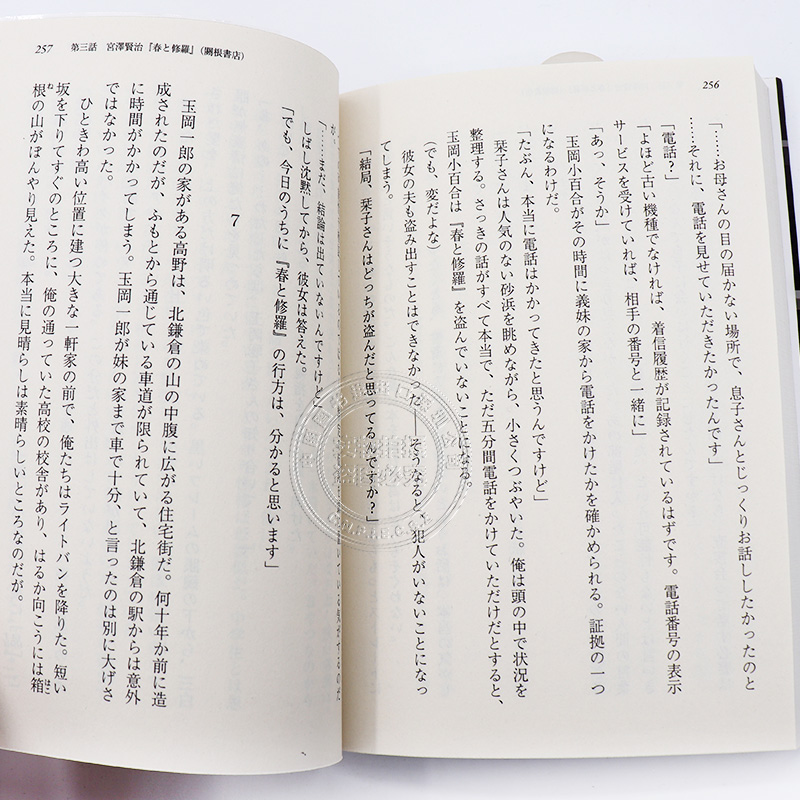 256
「……お母さんの目の届かない場所で、息子さんとじっくりお話ししたかったのと
……それに、電話を見せていただきたかったんです」
「電話?」
「よほど古い機種でなければ、着信履歴が記録されているはずです。電話番号の表示
サービスを受けていれば、相手の番号と一緒に」
「あっ、そうか」
玉岡小百合がその時間に義妹の家から電話をかけたかを確かめられる。証拠の一つ
になるわけだ。
「たぶん、本当に電話はかかってきたと思うんですけど」
栞子さんは人気のない砂浜を眺めながら、小さくつぶやいた。俺は頭の中で状況を
整理する。さっきの話がすべて本当で、ただ五分間電話をかけていただけだとすると、
玉岡小百合は『春と修羅』を盗んでいないことになる。
(でも、変だよな)
彼女の夫も盗み出すことはできなかった——そうなると、犯人がいないことになっ
てしまう。
「結局、栞子さんはどっちが盗んだと思ってるんですか?」
257 第三話 宮澤賢治『春と修羅』(關根書店)
が。
「……まだ、結論は出ていないんですけど」
しばし沈黙してから、彼女は答えた。
「でも、今日のうちに『春と修羅』の行方は、分かると思います」
7
玉岡一郎の家がある高野は、北鎌倉の山の中腹に広がる住宅街だ。何十年か前に造
成されたのだが、ふもとから通じている車道が限られていて、北鎌倉の駅からは意外
に時間がかかってしまう。玉岡一郎が妹の家まで車で十分、と言ったのは別に大げさ
ではなかった。
ひときわ高い位置に建つ大きな一軒家の前で、俺たちはライトバンを降りた。短い
坂を下りてすぐのところに、俺の通っていた高校の校舎があり、はるか向こうには箱
根の山がぼんやり見えた。本当に見晴らしは素晴らしいところなのだが。